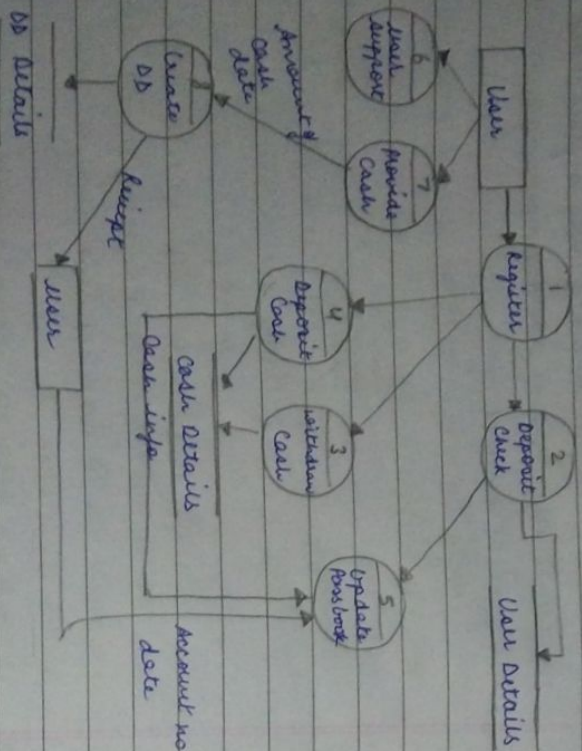 User
1
Register
2
Deposit
Check
User Details
6
User
support
7
Provide
Cash
4
Deposit
Cash
3
Withdraw
Cash
5
Update
Passbook
Amount &
Cash
date
8
Create
DD
Cash Details
Cash info
Account no
date
DD Details
Reciept
User